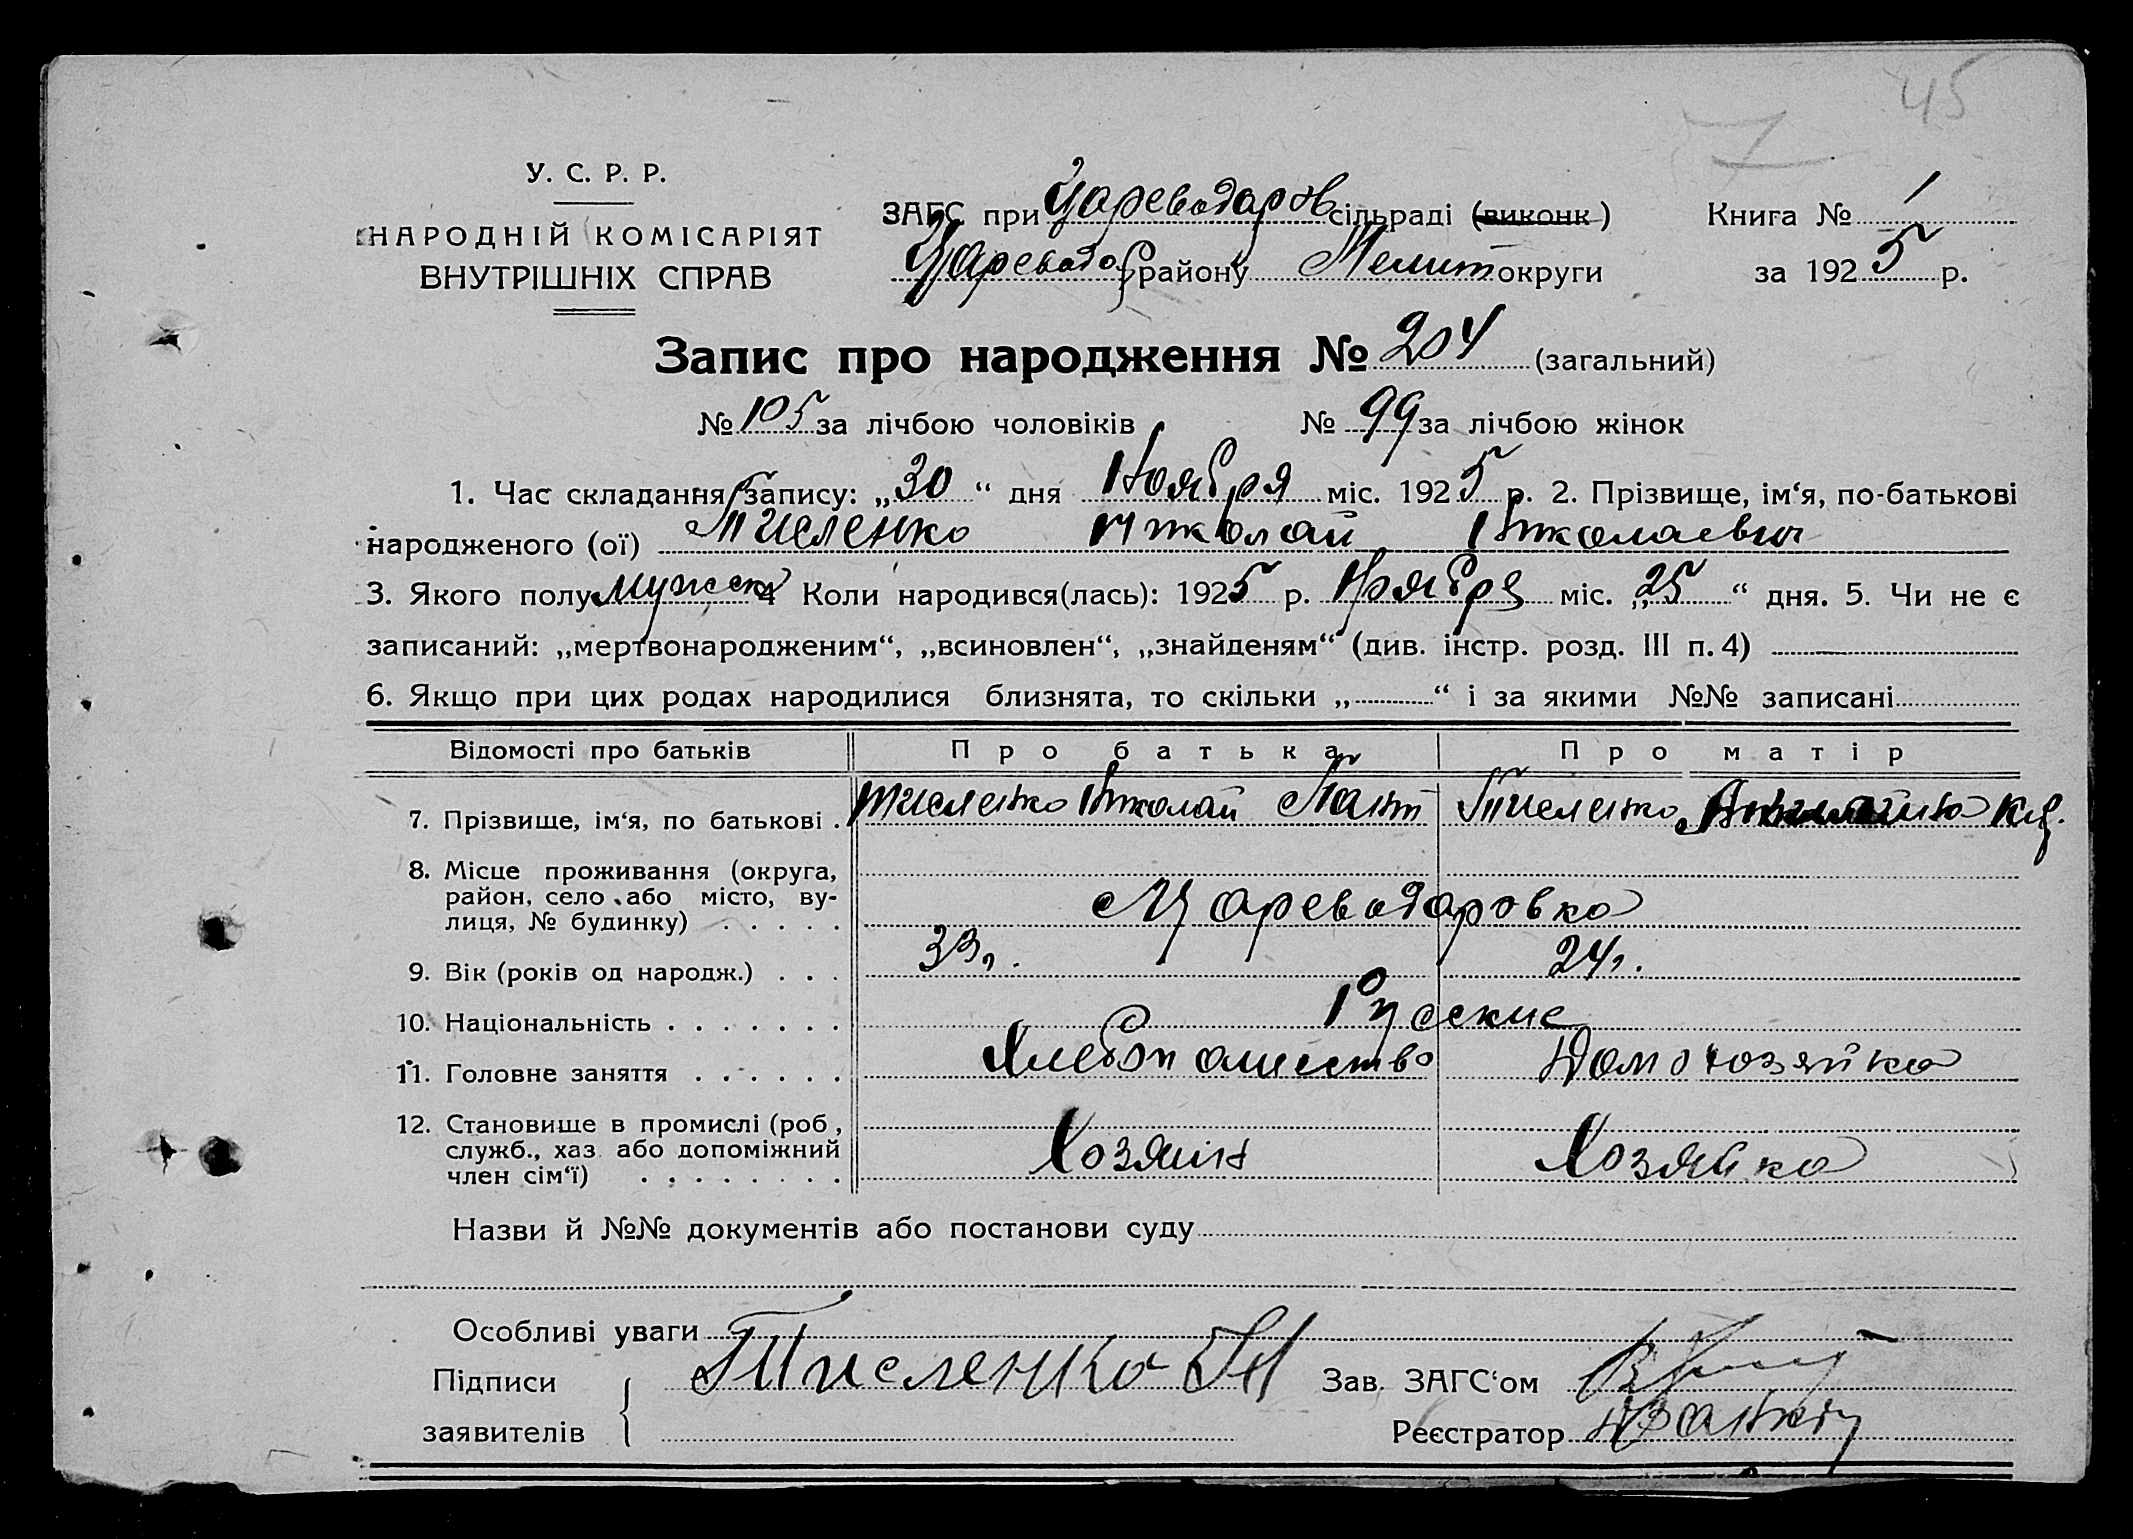 45
7
У. С. Р. Р.
НАРОДНІЙ КОМІСАРІЯТ
ВНУТРІШНІХ СПРАВ
ЗАГС при Цареводаров сільраді (виконк)
Цареводар району Мелит округи
Книга № 1
за 1925 р.
Запис про народження № 204 (загальний)
№ 105 за лічбою чоловіків № 99 за лічбою жінок
1. Час складання запису: „30“ дня Ноября міс. 1925 р. 2. Прізвище, ім‘я, по-батькові
народженого (ої) Тисленко Николай Николаевич
3. Якого полу мужск 4 Коли народився(лась): 1925 р. Ноября міс. „25“ дня. 5. Чи не є
записаний: „мертвонародженим“, „всиновлен“, „знайденям“ (див. інстр. розд. III п. 4)
6. Якщо при цих родах народилися близнята, то скільки „ “ і за якими №№ записані
Відомості про батьків Про батька Про матір
7. Прізвище, ім‘я, по батькові . Тисленко Николай Тисленко
8. Місце проживання (округа,
район, село або місто, ву-
лиця, № будинку) . . . . . Цареводаровка
9. Вік (років од народж.) . . . 33 л. 24 л.
10. Національність . . . . . . . Русские
11. Головне заняття . . . . . . Хлебопашество Домохозяйка
12. Становище в промислі (роб,
служб., хаз. або допоміжний
член сім‘ї) . . . . . . . . Хозяин Хозяйка
Назви й №№ документів або постанови суду
Особливі уваги
Підписи
заявителів
Тисленко Н
Зав. ЗАГС‘ом
Реєстратор